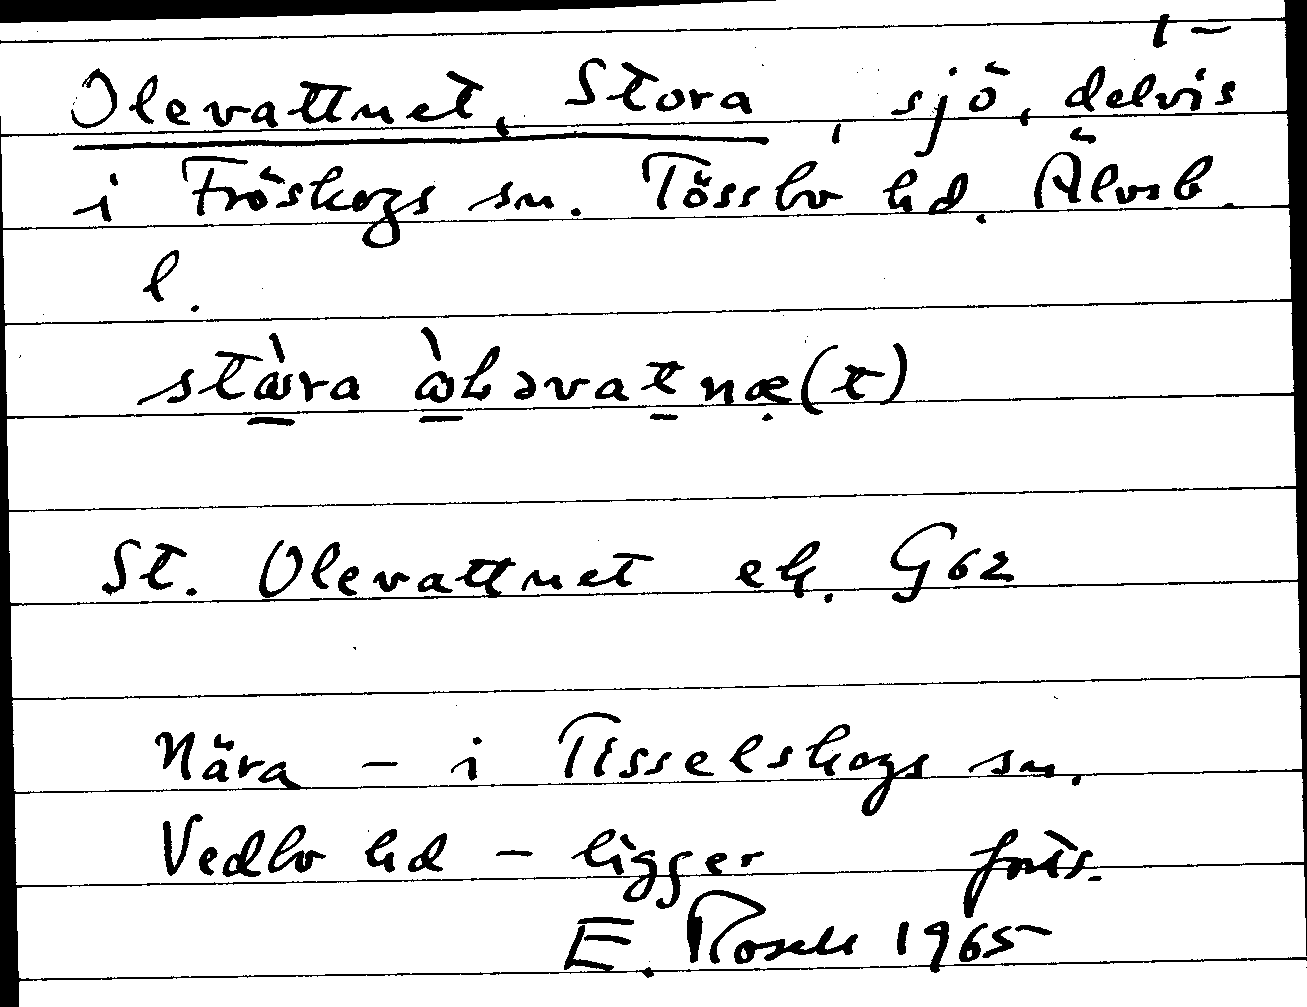 1 –
Olevattnet, Stora, sjö, delvis
i Fröskogs sn. Tössbo hd. Älvsb.
l.
St. Olevattnet ek. G62
Nära – i Tisselskogs sn.
Vedbo hd – ligger forts.
E. Rosell 1965